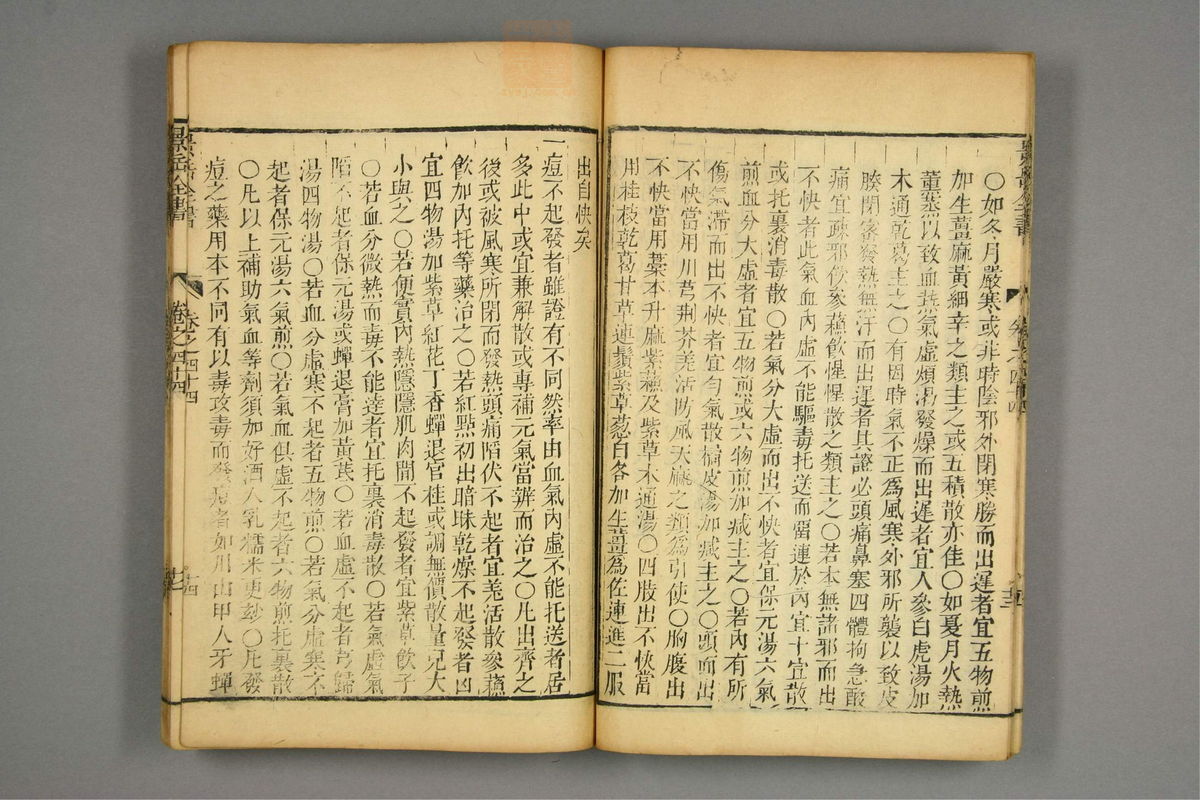 ○如冬月嚴寒或非時陰邪外閉寒勝而出遲者宜五物煎
加生薑麻黃細辛之類主之或五積散亦佳○如夏月火熱
薰蒸以致血熱氣虛煩渴發燥而出遲者宜人參白虎湯加
木通乾葛主之○有因時氣不正爲風寒外邪所襲以致皮
腠閉密發熱無汗而出遲者其證必頭痛鼻塞四體拘急酸
痛宜疎邪飲參蘇飲惺惺散之類主之○若本無諸邪而出
不快者此氣血內虛不能驅毒托送而畱連於內宜十宣散
或托裏消毒散○若氣分大虛而出不快者宜保元湯六氣
煎血分大虛者宜五物煎或六物煎加減主之○若內有所
傷氣滯而出不快者宜勻氣散橘皮湯加減主之○頭面出
不快當用川芎荆芥羌活防風天麻之類爲引使○胸腹出
不快當用藁本升麻紫蘇及紫草木通湯○四肢出不快當
用桂枝乾葛甘草連鬚紫草葱白各加生薑爲佐連進二服
出自快矣
一痘不起發者雖證有不同然率由血氣內虛不能托送者居
多此中或宜兼解散或專補元氣當辨而治之○凡出齊之
後或被風寒所閉而發熱頭痛陷伏不起者宜羌活散參蘇
飲加內托等藥治之○若紅點初出暗昧乾燥不起發者四
宜四物湯加紫草紅花丁香蟬退官桂或調無價散量兒大
小與之○若便實內熱隱隱肌肉間不起發者宜紫草飲子
○若血分微熱而毒不能達者宜托裏消毒散○若氣虛氣
陷不起者保元湯或蟬退膏加黃芪○若血虛不起者芎歸
湯四物湯○若血分虛寒不起者五物煎○若氣分虛寒不
起者保元湯六氣煎○若氣血俱虛不起者六物煎托裏散
○凡以上補助氣血等劑須加好酒人乳糯米更玅○凡發
痘之藥用本不同有以毒攻毒而發痘者如川山甲人牙蟬
景岳全書
卷之四十四